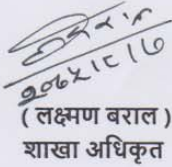 २०७५।८।७
( लक्ष्मण बराल )
शाखा अधिकृत